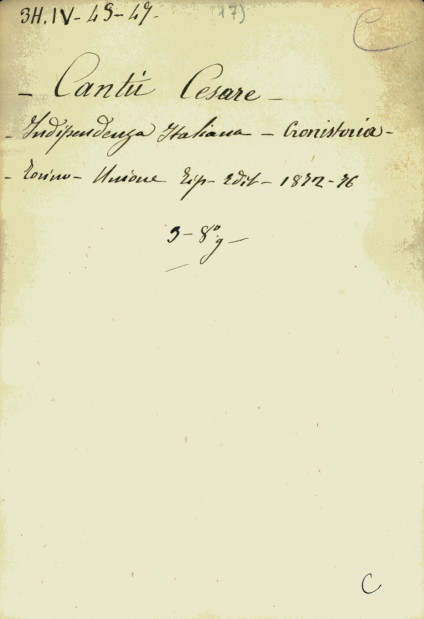 3H.IV-45-49. (17) C
- Cantù Cesare -
- Indipendenza Italiana - Cronistoria -
- Torino - Unione Tip - Edit - 1872-76
3 - 8° g -
C